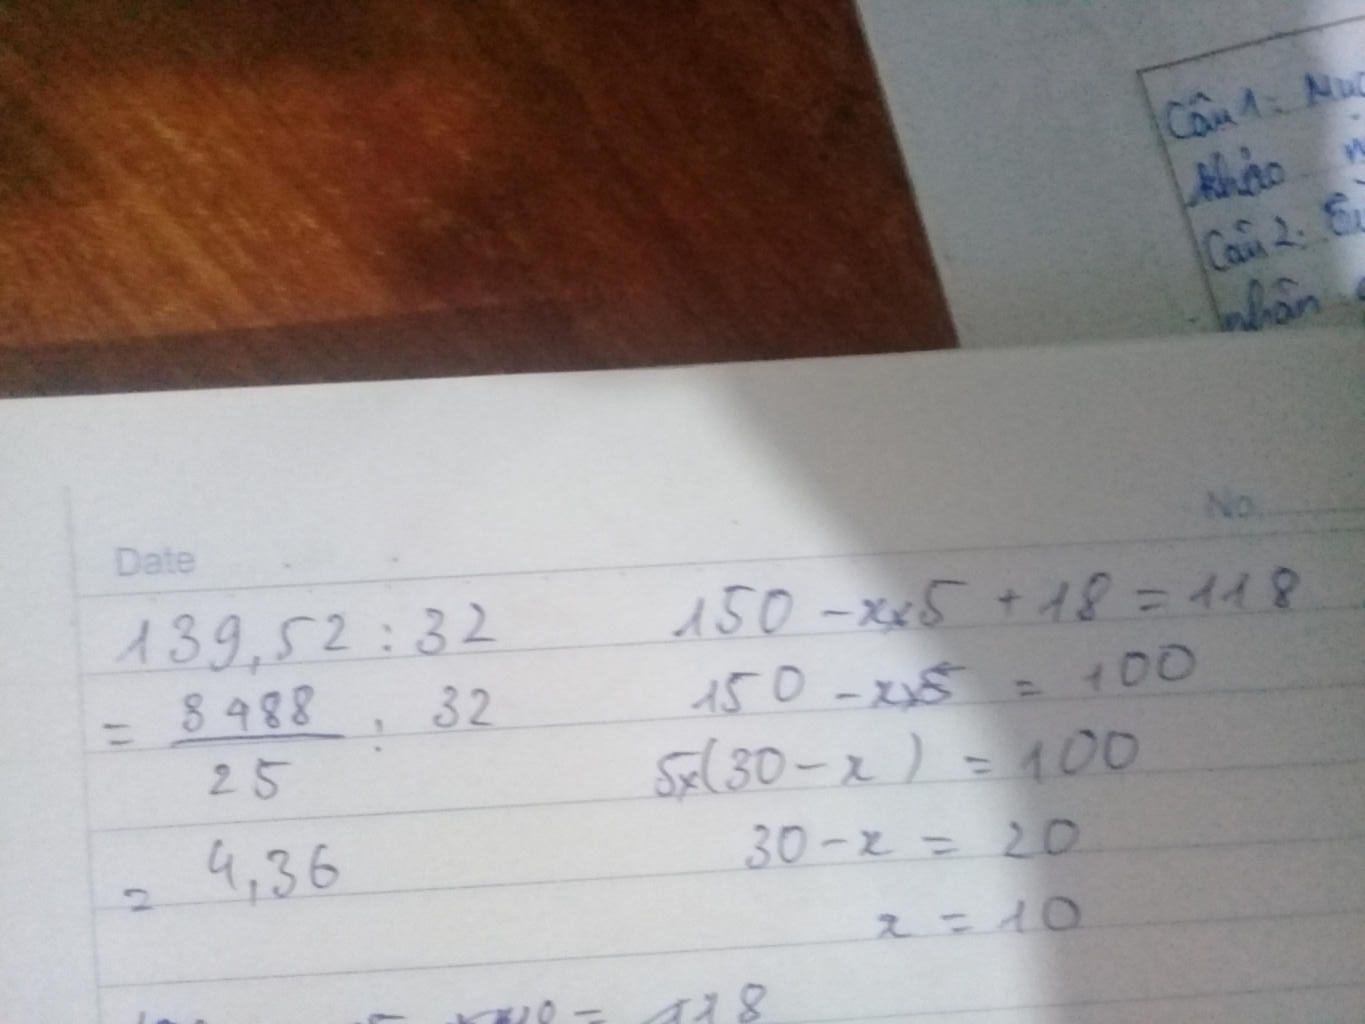 Câu 1:
khảo
Câu 2.
nhân
No.
Date
139,52 : 32
= 3488/25 : 32
= 4,36
150 - x x 5 + 18 = 118
150 - x x 5 = 100
5x(30 - x) = 100
30 - x = 20
x = 10
= 118